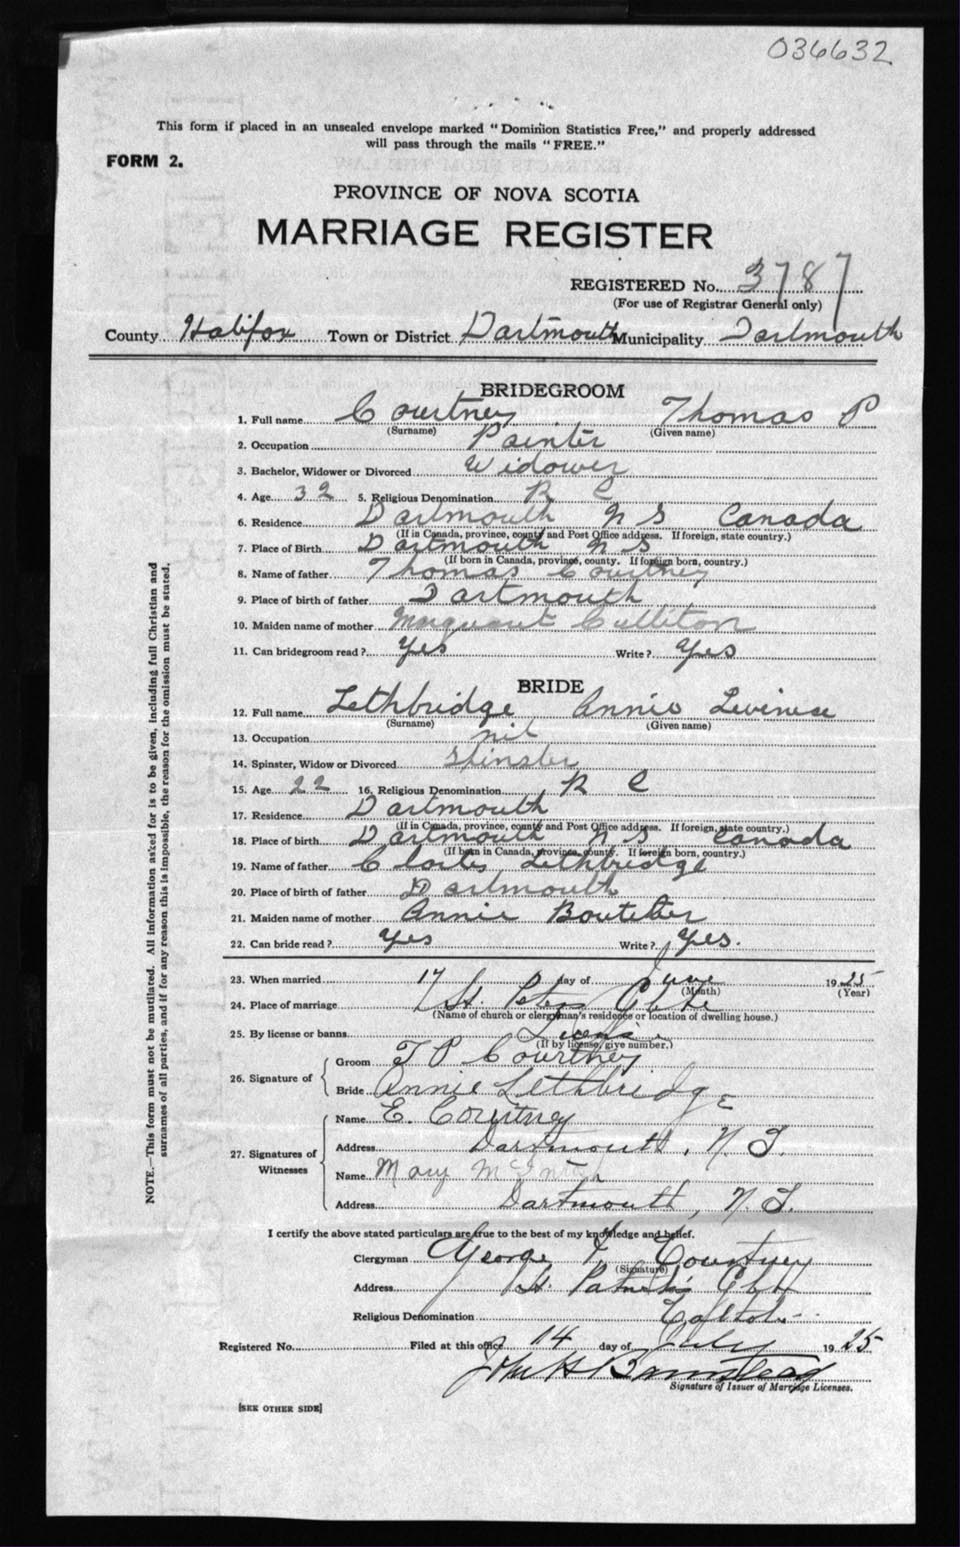 036632
This form if placed in an unsealed envelope marked "Dominion Statistics Free," and properly addressed
will pass through the mails "FREE."
FORM 2.
PROVINCE OF NOVA SCOTIA
MARRIAGE REGISTER
REGISTERED No. 3787
(For use of Registrar General only)
County Halifax Town or District Dartmouth Municipality Dartmouth
BRIDEGROOM
1. Full name Courtney Thomas P
(Surname) (Given name)
2. Occupation Painter
3. Bachelor, Widower or Divorced Widower
4. Age 32 5. Religious Denomination R C
6. Residence Dartmouth N S Canada
(If in Canada, province, county and Post Office address. If foreign, state country.)
7. Place of Birth Dartmouth N S
(If born in Canada, province, county. If foreign born, country.)
8. Name of father Thomas Courtney
9. Place of birth of father Dartmouth
10. Maiden name of mother Marguaret Culliton
11. Can bridegroom read? Yes Write? Yes
BRIDE
12. Full name Lethbridge Annie
(Surname) (Given name)
13. Occupation nil
14. Spinster, Widow or Divorced Spinster
15. Age 22 16. Religious Denomination R C
17. Residence Dartmouth
(If in Canada, province, county and Post Office address. If foreign, state country.)
18. Place of birth Dartmouth N S Canada
(If born in Canada, province, county. If foreign born, country.)
19. Name of father Charles Lethbridge
20. Place of birth of father Dartmouth
21. Maiden name of mother Annie Boutelier
22. Can bride read? Yes Write? Yes.
23. When married 17 day of June 1925
(Month) (Year)
24. Place of marriage St. Peters
(Name of church or clergyman's residence or location of dwelling house.)
25. By license or banns License
(If by license, give number.)
26. Signature of
Groom T P Courtney
Bride Annie Lethbridge
27. Signatures of Witnesses
Name E. Courtney
Address Dartmouth, N. S.
Name Mary
Address Dartmouth, N. S.
I certify the above stated particulars are true to the best of my knowledge and belief.
Clergyman George Courtney
(Signature)
Address St. Patrick's
Religious Denomination
Registered No. Filed at this office 14 day of July 1925
John H Banistead
Signature of Issuer of Marriage Licenses.
[SEE OTHER SIDE]
NOTE.—This form must not be mutilated. All information asked for is to be given, including full Christian and
surnames of all parties, and if for any reason this is impossible, the reason for the omission must be stated.